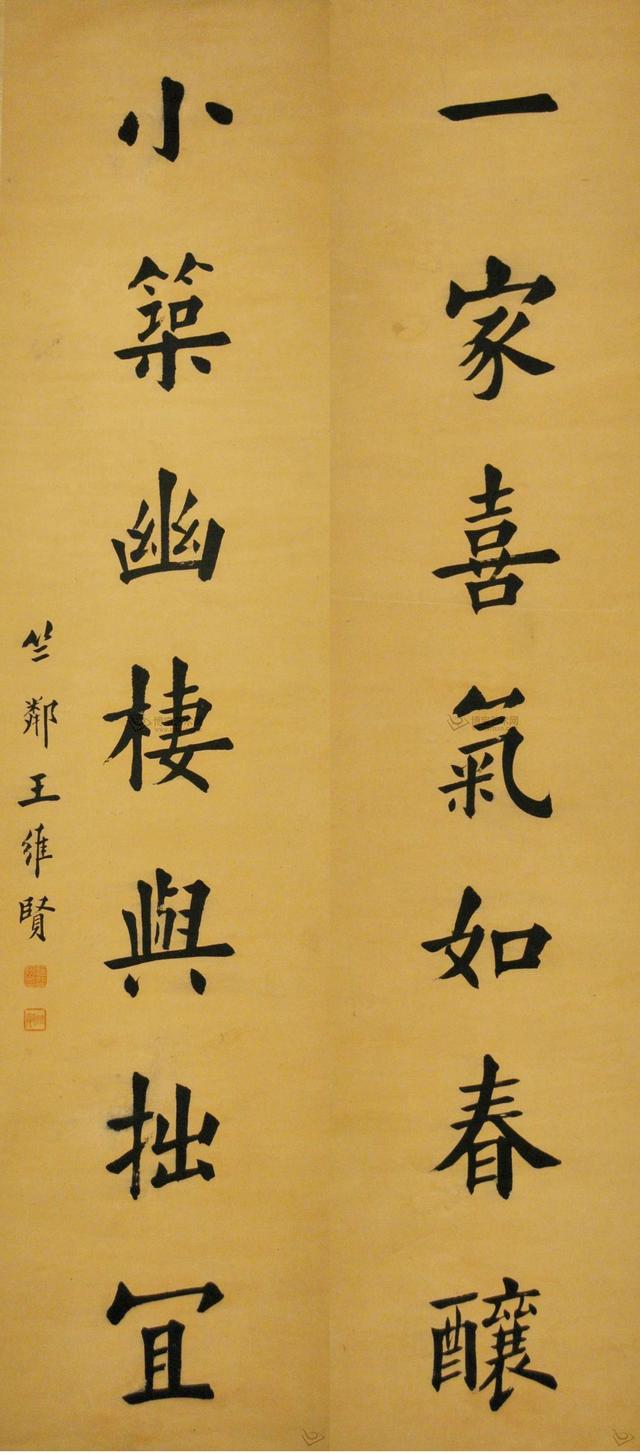 一家喜氣如春釀
小築幽棲與拙冝
竺鄰王維賢